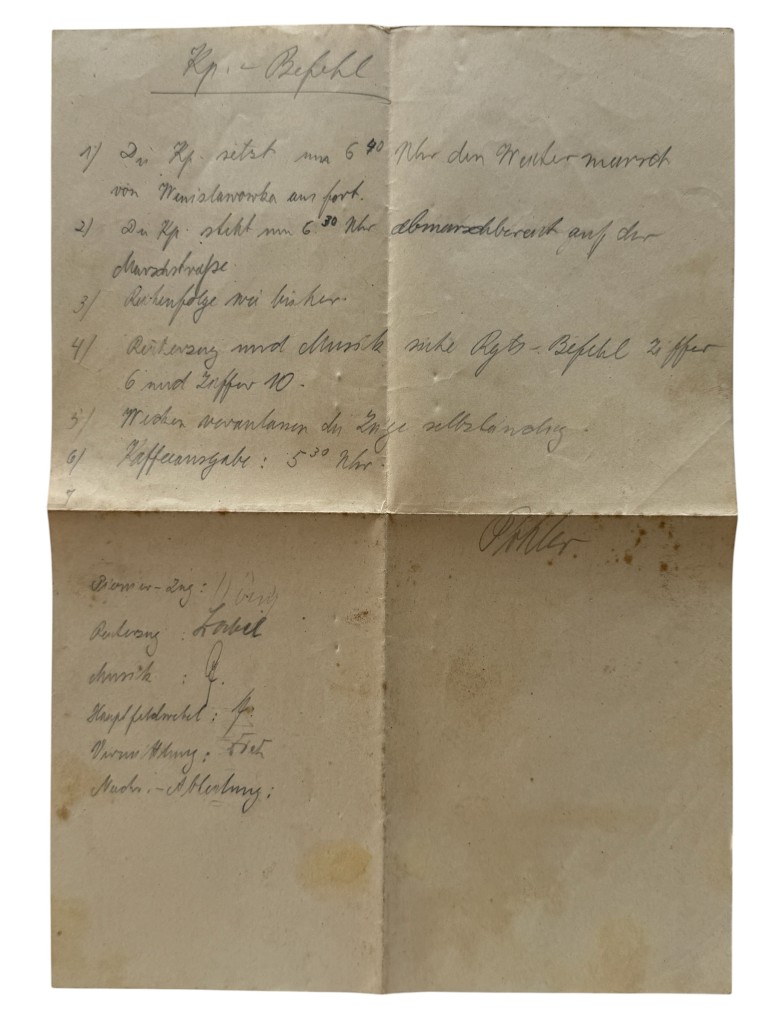 Kp. - Befehl
1) Die Kp. setzt um 6 40 Uhr den Weitermarsch
von Wenislawowka aus fort.
2) Die Kp. steht um 6 30 Uhr abmarschbereit auf der
Marschstraße.
3) Reihenfolge wie bisher.
4) Reiterzug und Musik siehe Rgts-Befehl Ziffer
6 und Ziffer 10.
5) Wecken veranlassen die Züge selbständig.
6) Kaffeeausgabe: 5 30 Uhr.
7
Pionier-Zug:
Reiterzug : Zabel
Musik :
Hauptfeldwebel:
Vermittlung:
Nachr.-Abteilung: